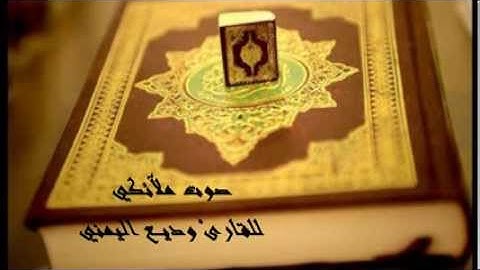 صوت ملائكي
للقارئ وديع اليمني